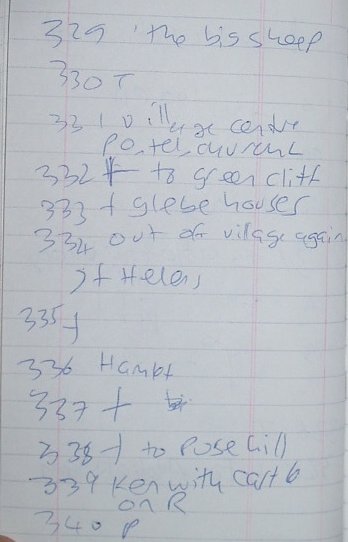 329 'the big sheep
330 T
331 village centre
332 t to green cliff
333 t glebe houses
334 out of village again
St Helens
335 t
336
337 t
338 t to Pusehill
339 Ken with cart 6
on R
340 P